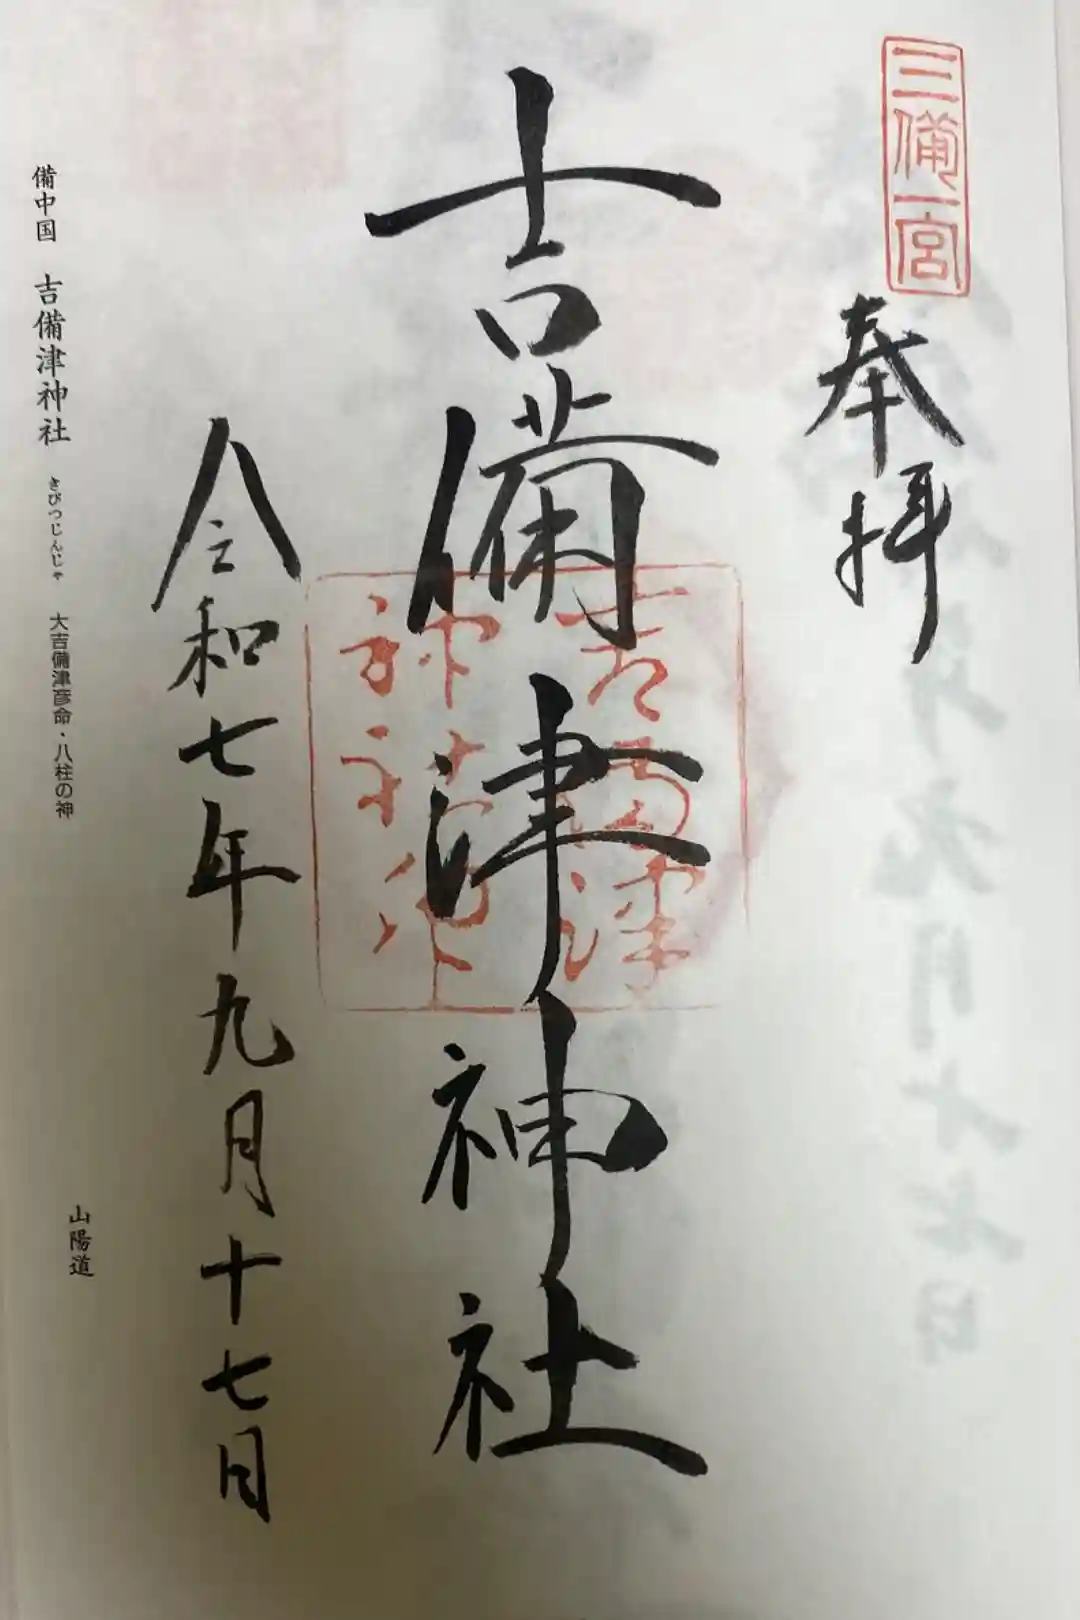 三備一宮
奉拝
吉備津神社
吉備津
令和七年九月十七日
備中国 吉備津神社 きびつじんじゃ 大吉備津彦命・八柱の神
山陽道